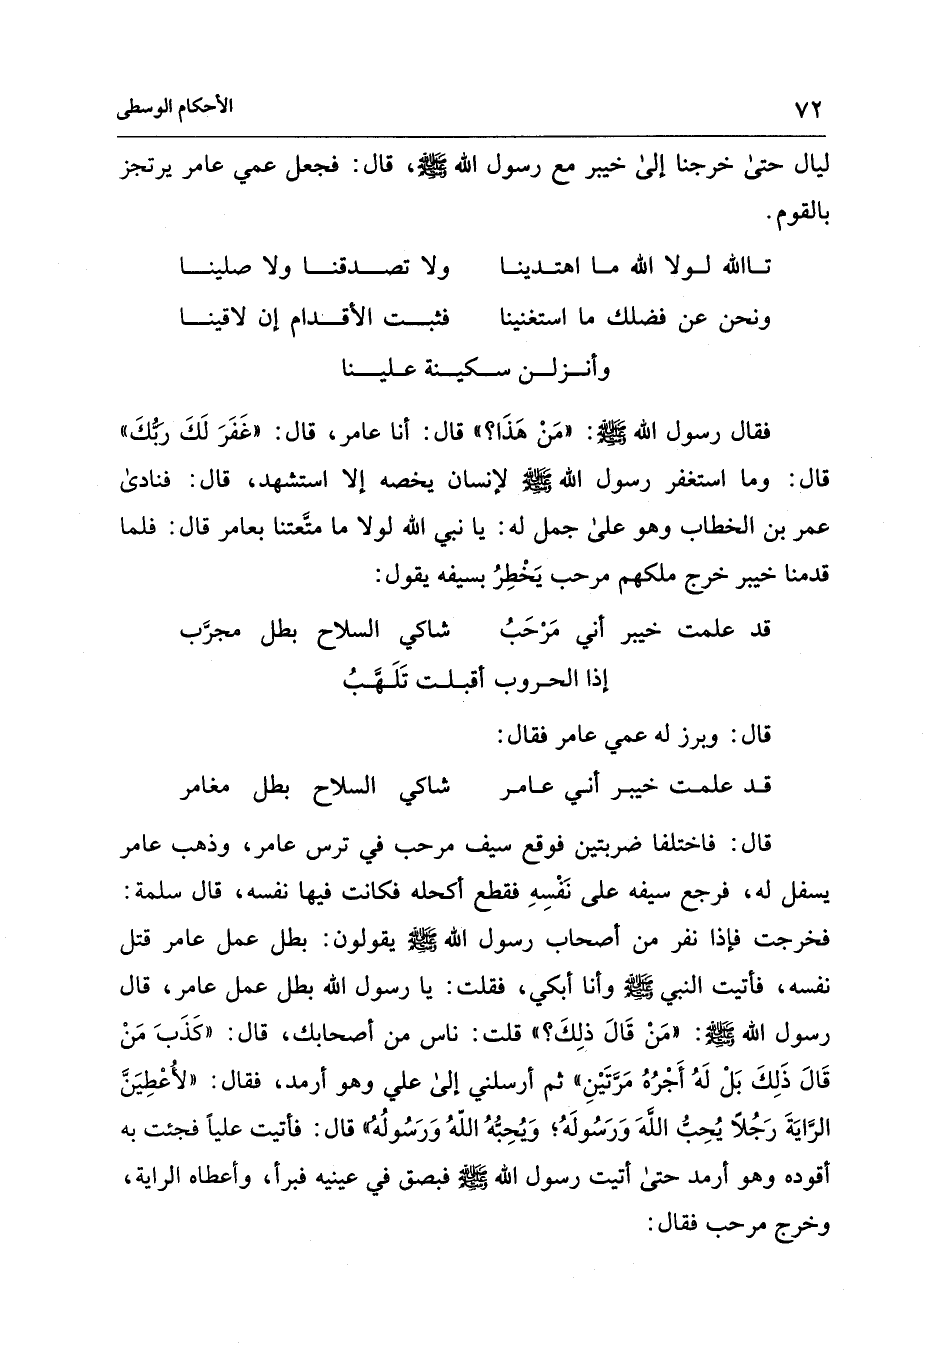 ٧٢ الأحكام الوسطى
ليال حتىٰ خرجنا إلىٰ خيبر مع رسول الله ﷺ، قال: فجعل عمي عامر يرتجز
بالقوم.
تـاالله لـولا الله مـا اهتـدينـا ولا تصـــدقنـــا ولا صلينـــا
ونحن عن فضلك ما استغنينا فثبـــت الأقـــدام إن لاقينـــا
وأنـــزلـــن سـكينـــة علـــينـــا
فقال رسول الله ﷺ: «مَنْ هَذَا؟» قال: أنا عامر، قال: «غَفَرَ لَكَ رَبُّكَ»
قال: وما استغفر رسول الله ﷺ لإنسان يخصه إلا استشهد، قال: فنادىٰ
عمر بن الخطاب وهو علىٰ جمل له: يا نبي الله لولا ما متَّعتنا بعامر قال: فلما
قدمنا خيبر خرج ملكهم مرحب يَخْطِرُ بسيفه يقول:
قد علمت خيبر أني مَرْحَبُ شاكي السلاح بطل مجرَّب
إذا الحـروب أقبـلـت تَلَـهَّـبُ
قال: وبرز له عمي عامر فقال:
قـد علمـت خيبـر أنـي عـامـر شاكي السلاح بطل مغامر
قال: فاختلفا ضربتين فوقع سيف مرحب في ترس عامر، وذهب عامر
يسفل له، فرجع سيفه على نَفْسِهِ فقطع أكحله فكانت فيها نفسه، قال سلمة:
فخرجت فإذا نفر من أصحاب رسول الله ﷺ يقولون: بطل عمل عامر قتل
نفسه، فأتيت النبي ﷺ وأنا أبكي، فقلت: يا رسول الله بطل عمل عامر، قال
رسول الله ﷺ: «مَنْ قَالَ ذلِكَ؟» قلت: ناس من أصحابك، قال: «كَذَبَ مَنْ
قَالَ ذَلِكَ بَلْ لَهُ أَجْرُهُ مَرَّتَيْنِ» ثم أرسلني إلىٰ علي وهو أرمد، فقال: «لأُعْطِيَنَّ
الرَّايَةَ رَجُلاً يُحِبُّ اللَّهَ وَرَسُولَهُ؛ وَيُحِبُّهُ اللّهُ وَرَسُولُهُ» قال: فأتيت علياً فجئت به
أقوده وهو أرمد حتىٰ أتيت رسول الله ﷺ فبصق في عينيه فبرأ، وأعطاه الراية،
وخرج مرحب فقال: